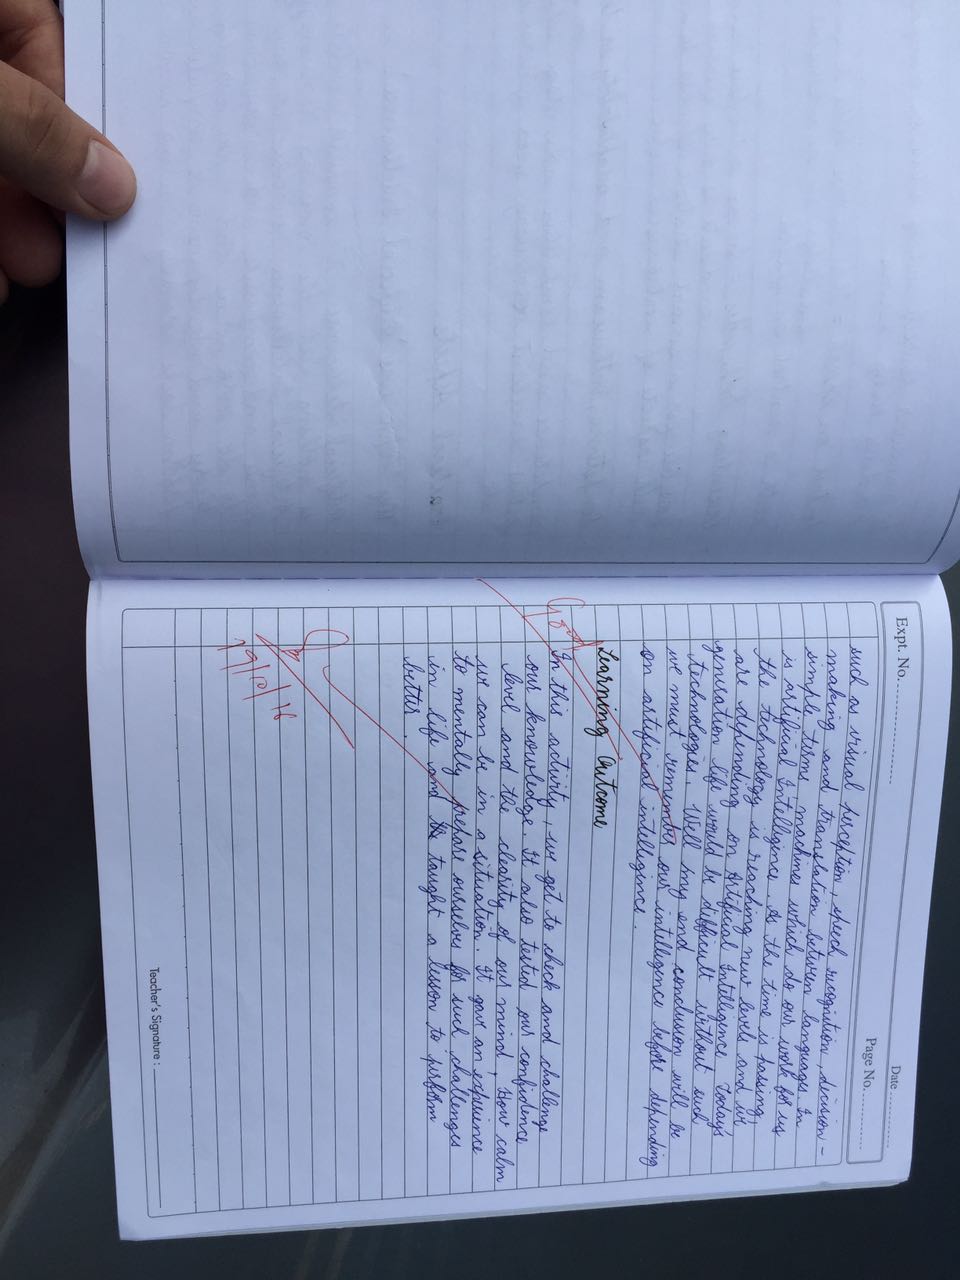 Expt. No.
Date
Page No.
such as visual perception, speech recognition, decision -
making and translation between languages. In
simple terms, machines which do our work for us
is artificial Intelligence. As the time is passing,
the technology is reaching new levels and we
are depending on Artificial Intelligence. Today's
generation life would be difficult without such
technologies. Well my end conclusion will be
we must remember our intelligence before depending
on artificial intelligence.
Learning Outcome
Good
In this activity, we get to check and challenge
our knowledge. It also tested our confidence
level and the clearity of our mind, How calm
we can be in a situation. It gave an experience
to mentally prepare ourselves for such challenges
in life and taught a lesson to perform
better.
Teacher's Signature :